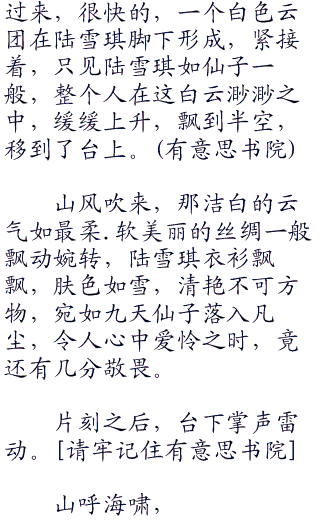 过来，很快的，一个白色云
团在陆雪琪脚下形成，紧接
着，只见陆雪琪如仙子一
般，整个人在这白云渺渺之
中，缓缓上升，飘到半空，
移到了台上。(有意思书院)
山风吹来，那洁白的云
气如最柔.软美丽的丝绸一般
飘动婉转，陆雪琪衣衫飘
飘，肤色如雪，清艳不可方
物，宛如九天仙子落入凡
尘，令人心中爱怜之时，竟
还有几分敬畏。
片刻之后，台下掌声雷
动。[请牢记住有意思书院]
山呼海啸，